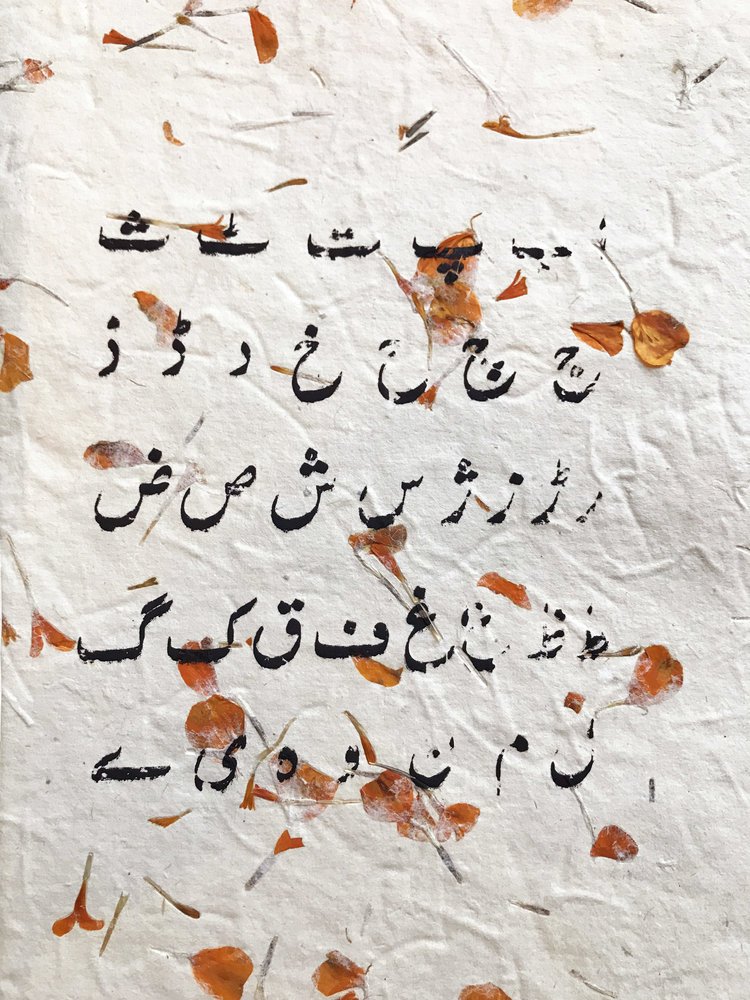 ا ب پ ت ٹ ث
ج چ ح خ د ڈ ذ
ر ڑ ز ژ س ش ص ض
ط ظ ع غ ف ق ک گ
ل م ن و ہ ی ے